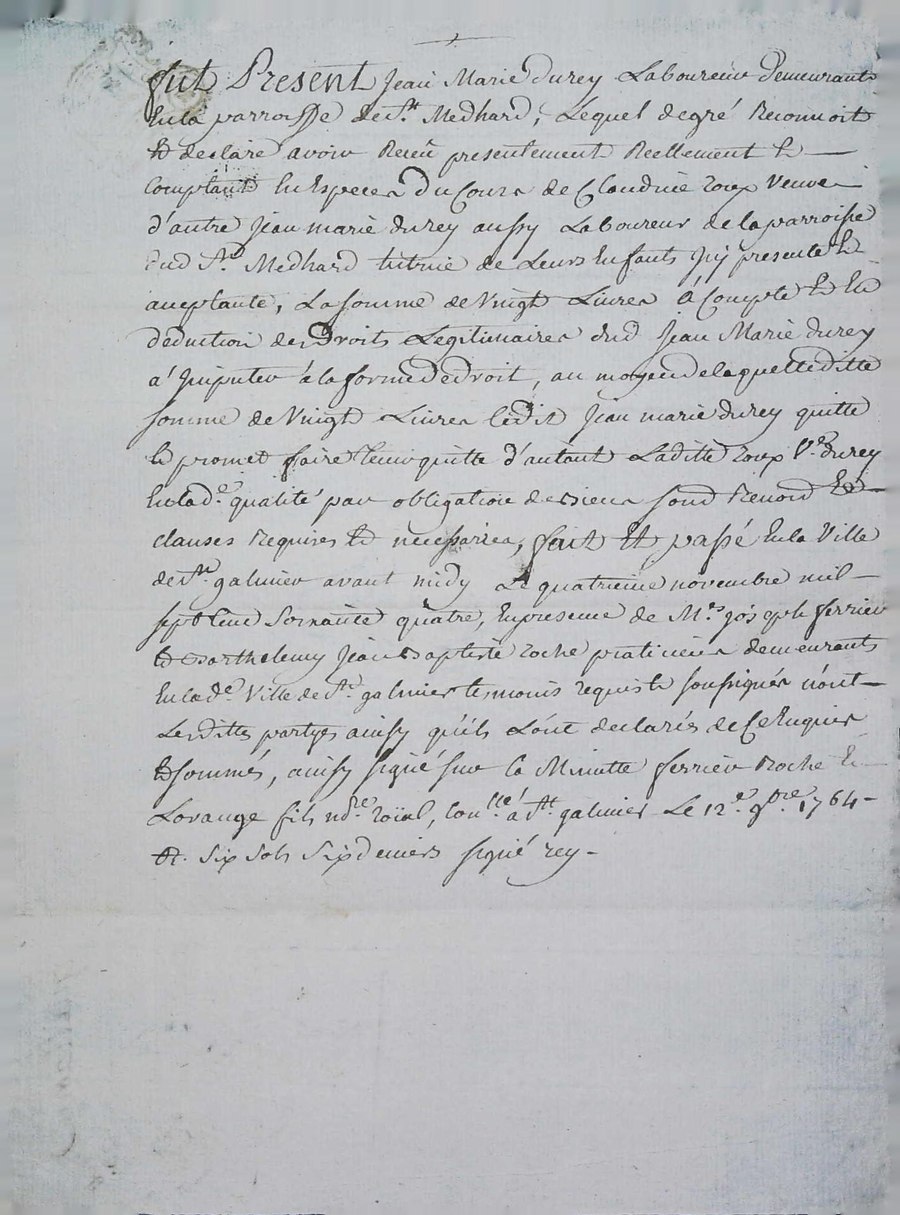 fut Present Jean Marie durey Laboureur demeurant
En la parroisse de St. Medhard, Lequel de gré Reconnoit
Et declare avoir Reçeu presentement Reellement Et
Comptant En Especes du Cours de Claudine roux Veuve
d'autre Jean marie durey aussy Laboureur de la parroisse
dud St. Medhard tutrice de Leurs Enfants jcy presente Et
acceptante, La somme de Vingt Livres à Compte Et En
déduction des Droits Légitimaires dud Jean Marie durey
a jmputer à la forme de droit, au moyen de laquelle ditte
somme de Vingt Livres ledit Jean marie durey quitte
Et promet faire tenir quitte d'autant Laditte roux Ve. durey
En lad.e qualité par obligation de biens soub Renon Et
clauses Requises Et necessaires, fait Et passé En la Ville
de St. galmier avant midy Le quatrieme novembre mil
sept Cent Soixante quatre, En presence de Mes. joseph ferrier
Et Barthelemy Jean Baptiste roche praticiens demeurants
En lad.e Ville de St. galmier temoins requis Et soussignés n'ont
Lesdittes partyes ainsy qu'ils L'ont declarés de Ce Enquis
Et sommés, ainsy signé sur la Minutte ferrier Roche Et
Lorange fils nd.e roial, Con.lle à St. galmier Le 12.e 9bre. 1764
Et. Six Sols Six deniers signé rey